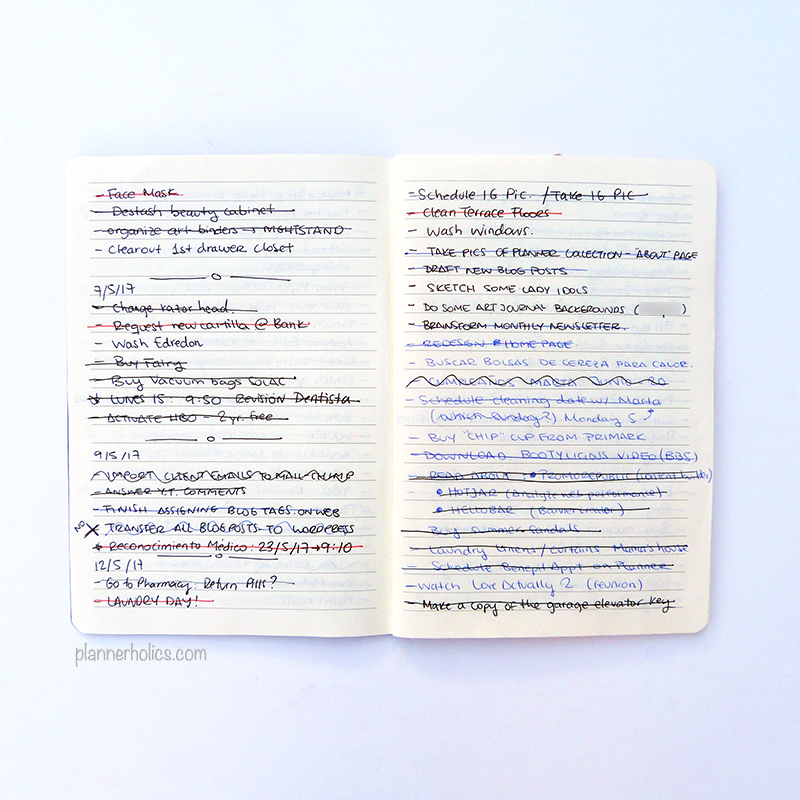 - Face Mask
- Destash beauty cabinet
- organize art binders → MGHTSTAND
- Clearout 1st drawer closet
7/5/17
- Change razor head.
- Request new cartilla @ Bank
- Wash Edredon
- Buy Fairy
- Buy Vacuum bags SOLAC
* LUNES 15: 9:50 Revisión Dentista
- ACTIVATE HBO - 2yr. free
9/5/17
- IMPORT CLIENT EMAILS TO MAILCHIMP
- ANSWER Y.T. COMMENTS
- FINISH ASSIGNING BLOG TAGS ON WEB
NO X TRANSFER ALL BLOG POSTS TO WORDPRESS
* Reconocimiento Médico: 23/5/17 → 9:10
12/5/17
- Go to Pharmacy. Return Pills?
- LAUNDRY DAY!
- Schedule IG Pic. / Take IG Pic
- Clean Terrace Floors
- Wash Windows.
- TAKE PICS OF PLANNER COLLECTION - "ABOUT" PAGE
- DRAFT NEW BLOG POSTS
- SKETCH SOME LADY IDOLS
- DO SOME ART JOURNAL BACKGROUNDS ( )
- BRAINSTORM MONTHLY NEWSLETTER.
- REDESIGN HOME PAGE
- BUSCAR BOLSAS DE CEREZA PARA CALOR.
- CUMPLEAÑOS MARTA JUNIO
- Schedule cleaning date w/ Marta
(which sunday?) Monday 5
- BUY "CHIP" CUP FROM PRIMARK
- DOWNLOAD BOOTYLICIOUS VIDEO (BBS)
- READ ABOUT: • PROMOREPUBLIC (content)
• HOTJAR (Analyze web performance)
• HELLOBAR (Banner)
- Buy summer Sandals
- Laundry Linens / Curtains Mama's house
- Schedule Benefit Appt on Planner
- Watch Love Actually 2 (reunion)
- Make a copy of the garage elevator key
plannerholics.com